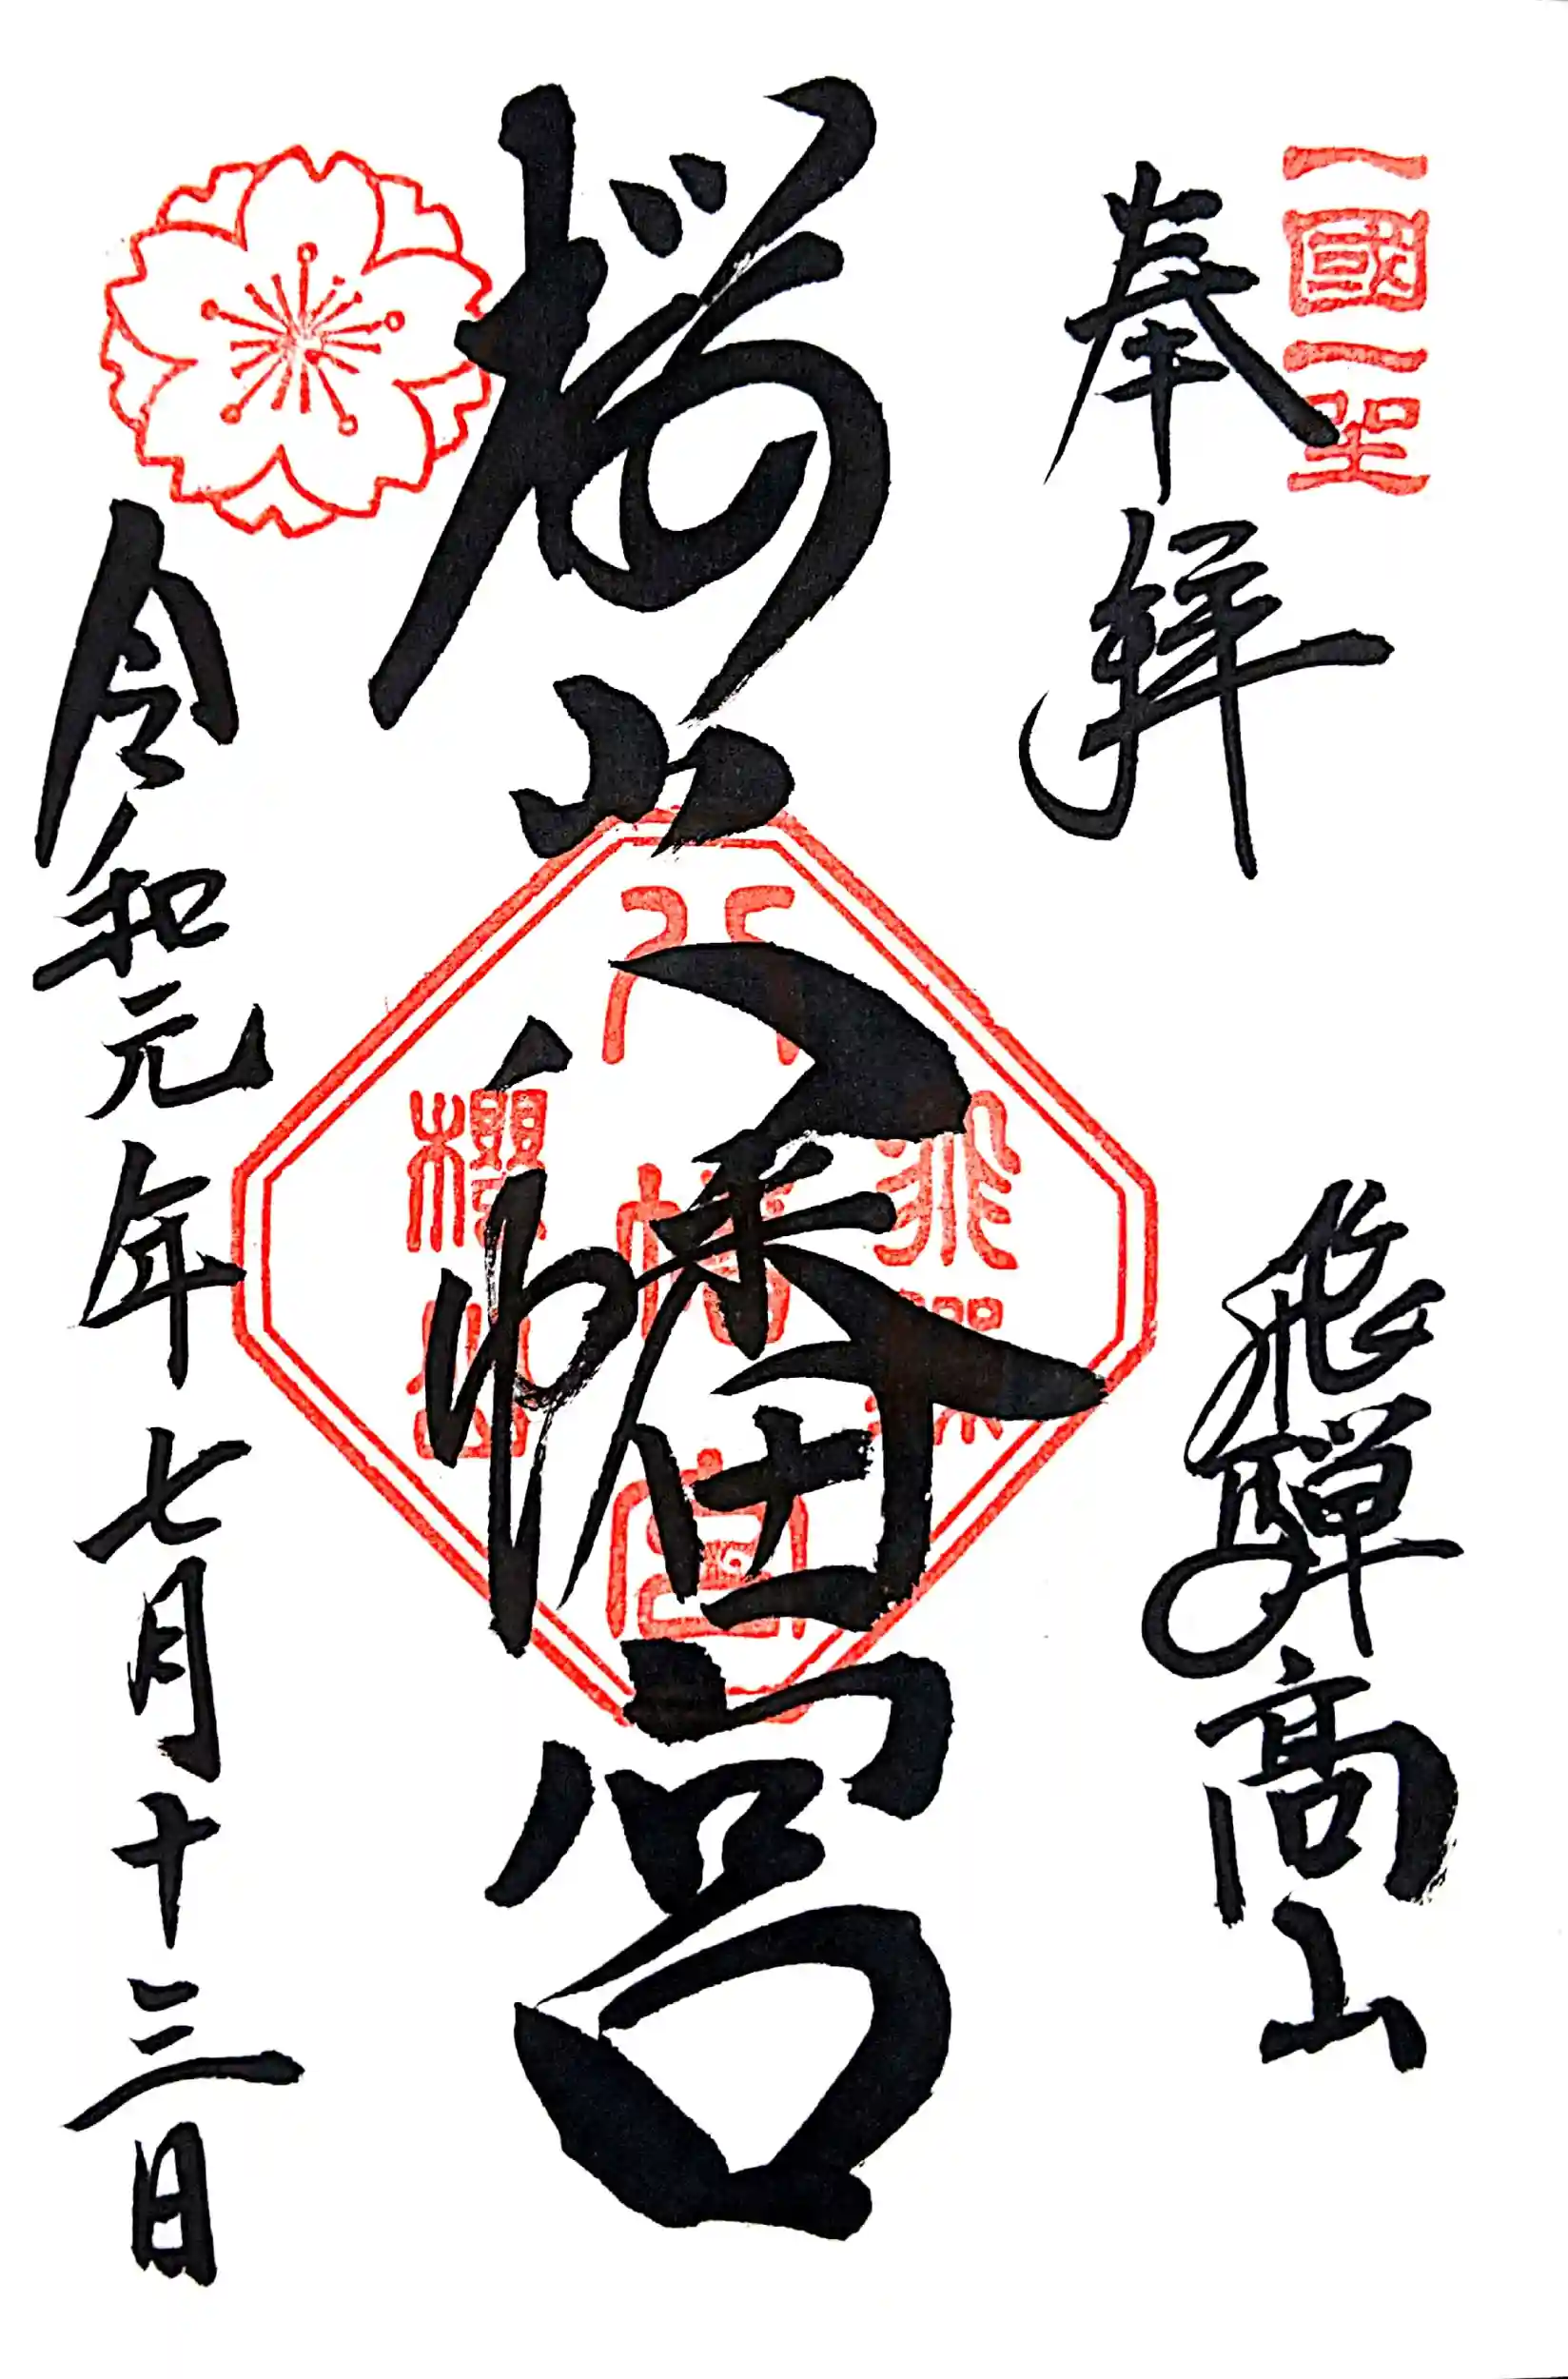 一國一
奉拝
飛騨高山
桜山八幡宮
八幡宮
櫻山
令和元年七月十三日